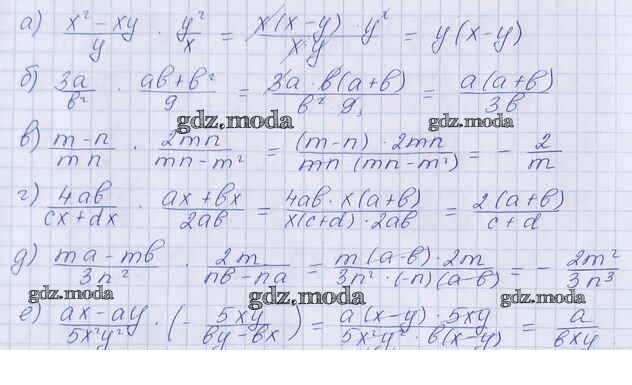 а) (x² - xy)/y · y²/x = (x(x-y) · y²)/(x·y) = y(x-y)
б) 3a/b² · (ab+b²)/9 = (3a · b(a+b))/(b² · 9) = (a(a+b))/(3b)
gdz.moda gdz.moda
в) (m-n)/(mn) · 2mn/(mn-m²) = ((m-n) · 2mn)/(mn (mn-m²)) = - 2/m
г) 4ab/(cx+dx) · (ax+bx)/(2ab) = (4ab · x(a+b))/(x(c+d) · 2ab) = (2(a+b))/(c+d)
д) (ma-mb)/(3n²) · 2m/(nb-na) = (m(a-b) · 2m)/(3n² · (-n)(a-b)) = - 2m²/(3n³)
gdz.moda gdz.moda gdz.moda
е) (ax-ay)/(5x²y²) · (- 5xy/(by-bx)) = (a(x-y) · 5xy)/(5x²y² · b(x-y)) = a/(bxy)